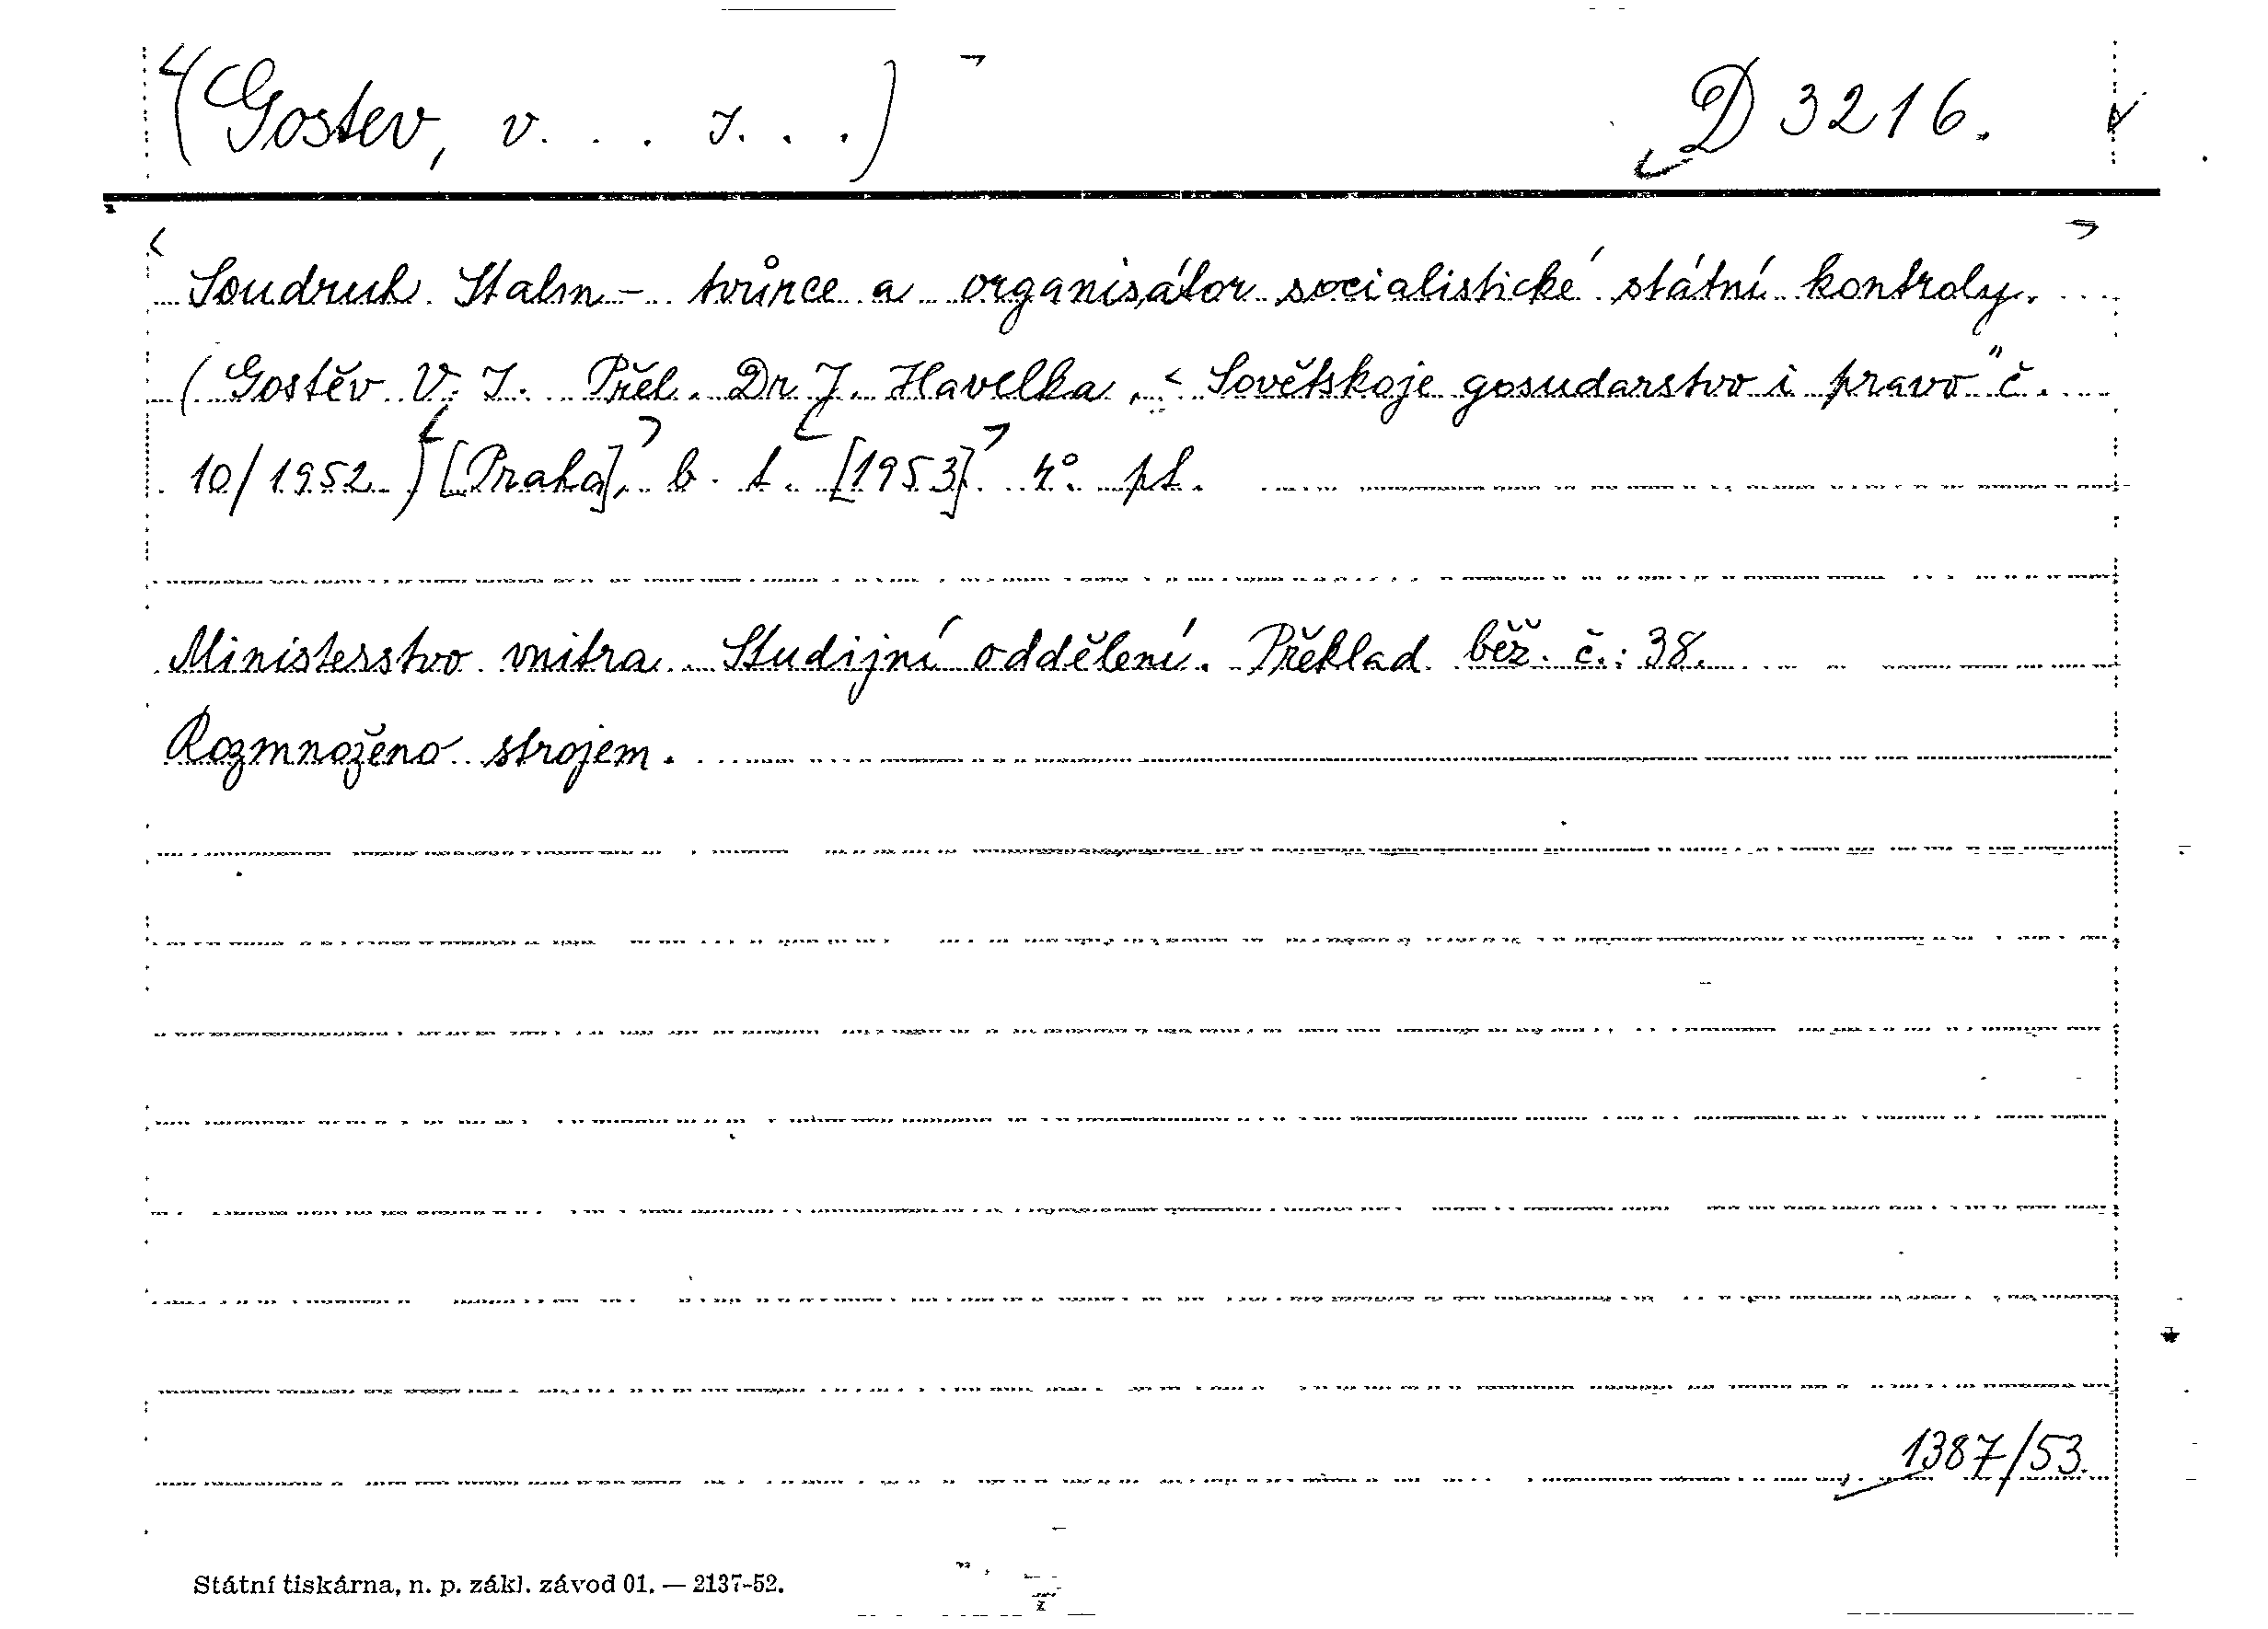 (Gostev, V... I...) D 3216.
Soudruh Stalin - tvůrce a organisátor socialistické státní kontroly.
(Gostěv V. I. Přel. Dr J. Havelka, Sovětskoje gosudarstvo i pravo" č.
10/1952.) [Praha], b. t. [1953]. 4°. pt.
Ministerstvo vnitra. Studijní oddělení. Překlad běž. č.: 38.
Rozmnoženo strojem.
1387/53.
Státní tiskárna, n. p. zákl. závod 01. — 2137-52.